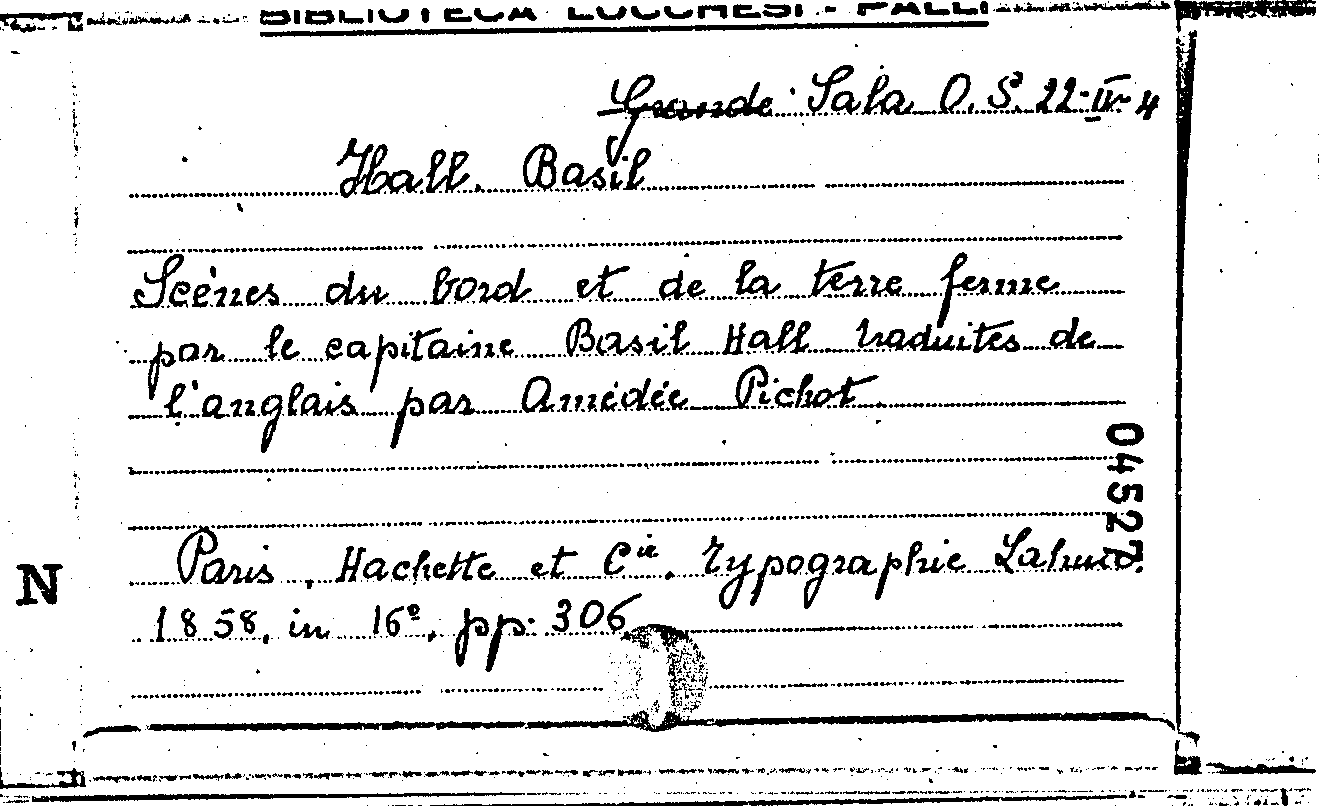 BIBLIOTECA LUCCHESI - PALLI
Grande Sala O. S. 22-IV-4
Hall. Basil
Scènes du bord et de la terre ferme
par le capitaine Basil Hall traduites de
l'anglais par Amédée Pichot.
04527
Paris, Hachette et Cie, Typographie Lahure.
N
1858, in 16º, pp. 306